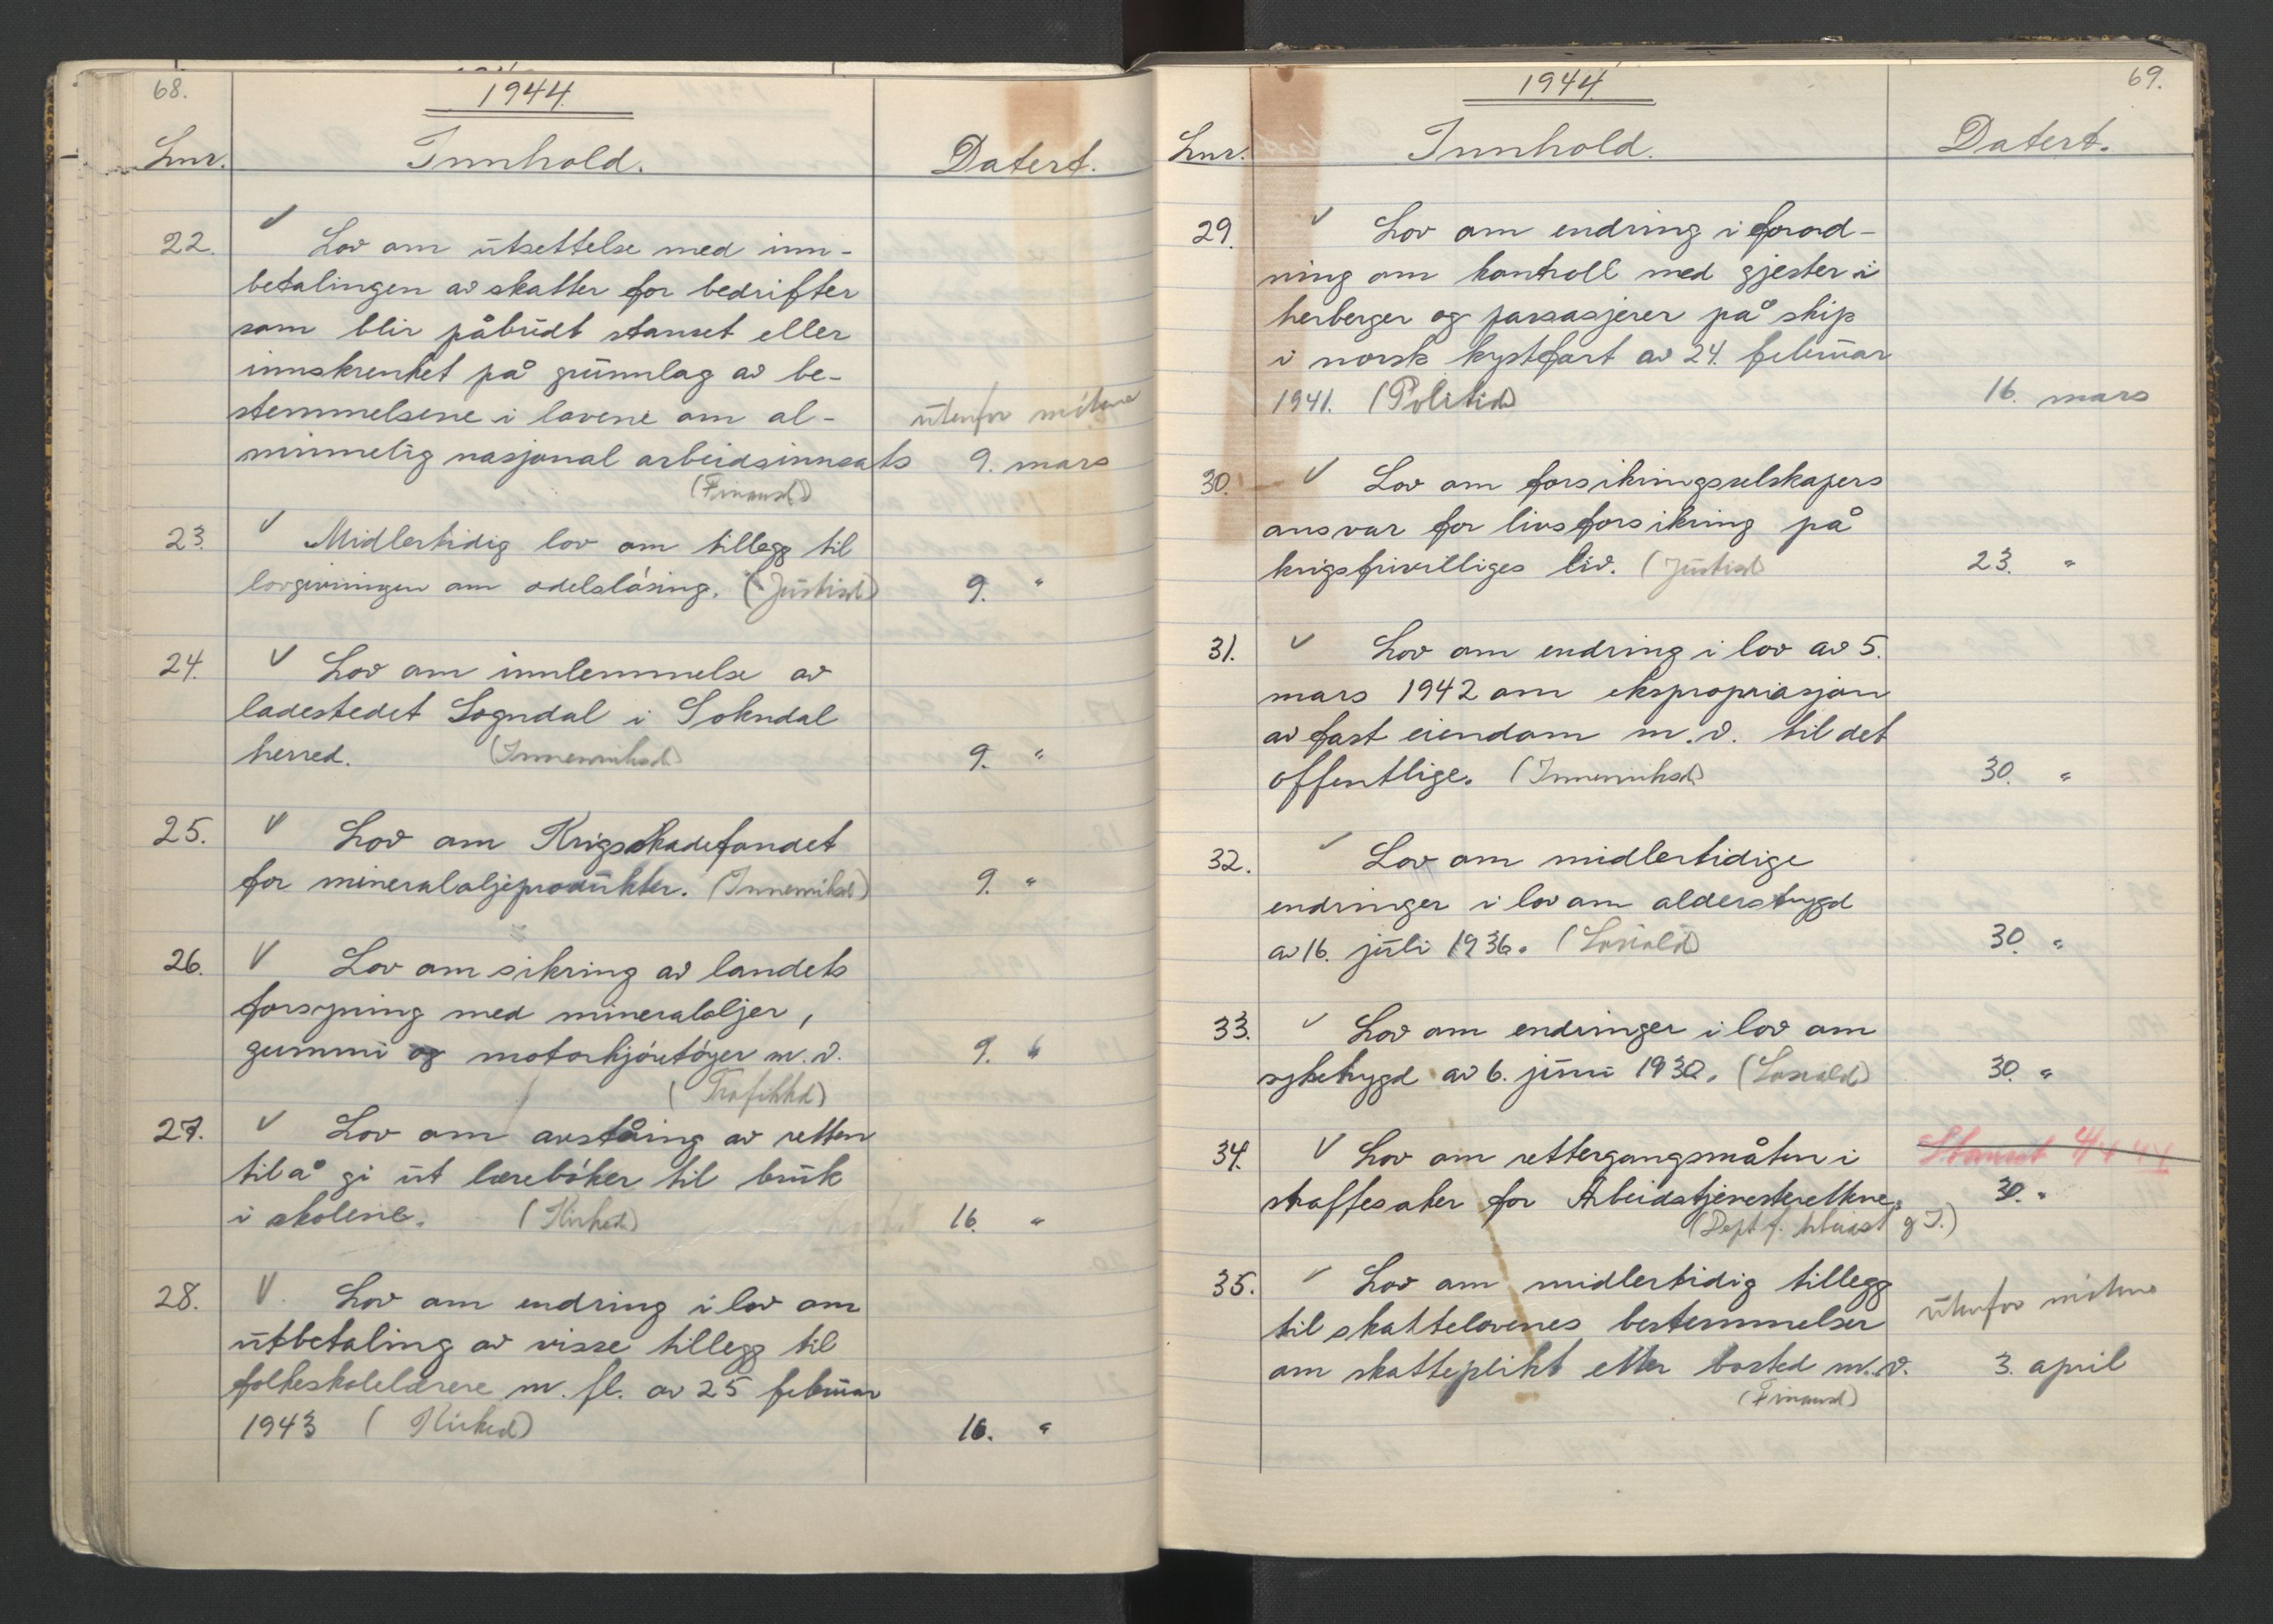 68.
1944.
Lnr.
Innhold.
Datert.
22.
Lov om utsettelse med inn-
betalingen av skatter for bedrifter
som blir påbudt stanset eller
innskrenket på grunnlag av be-
stemmelsene i lovene om al-
utenfor møtene
minnelig nasjonal arbeidsinnsats
9. mars
(Finansd)
23.
Midlertidig lov om tillegg til
lovgivningen om odelsløsing. (Justisd)
9. "
24.
Lov om innlemmelse av
ladestedet Sogndal i Sokndal
herred. (Innenriksd)
9. "
25.
Lov om Krigsskadefondet
for mineraloljeprodukter. (Innenriksd)
9. "
26.
Lov om sikring av landets
forsyning med mineraloljer,
gummi og motorkjøretøyer m.v.
9. "
(Trafikkd)
27.
Lov om avståing av retten
til å gi ut lærebøker til bruk
i skolene. (Kirked)
16. "
28.
Lov om endring i lov om
utbetaling av visse tillegg til
folkeskolelærere m. fl. av 25 februar
1943 (Kirked)
16. "
69.
1944.
Lnr.
Innhold.
Datert.
29.
Lov om endring i forord-
ning om kontroll med gjester i
herberger og passasjerer på skip
i norsk kystfart av 24. februar
1941. (Politid)
16. mars
30.
Lov om forsikringsselskapers
ansvar for livsforsikring på
krigsfrivilliges liv. (Justisd)
23. "
31.
Lov om endring i lov av 5.
mars 1942 om ekspropriasjon
av fast eiendom m.v. til det
offentlige. (Innenriksd)
30. "
32.
Lov om midlertidige
endringer i lov om alderstrygd
av 16. juli 1936. (Sosiald)
30. "
33.
Lov om endringer i lov om
syketrygd av 6. juni 1930. (Sosiald)
30. "
34.
Lov om rettergangsmåten i
Stanset
straffesaker for Arbeidstjenesterettene.
30. "
(Dept. f. Arbeidst og I.)
35.
Lov om midlertidig tillegg
til skattelovenes bestemmelser
utenfor møtene
om skatteplikt etter bosted m.v.
3. april
(Finansd)